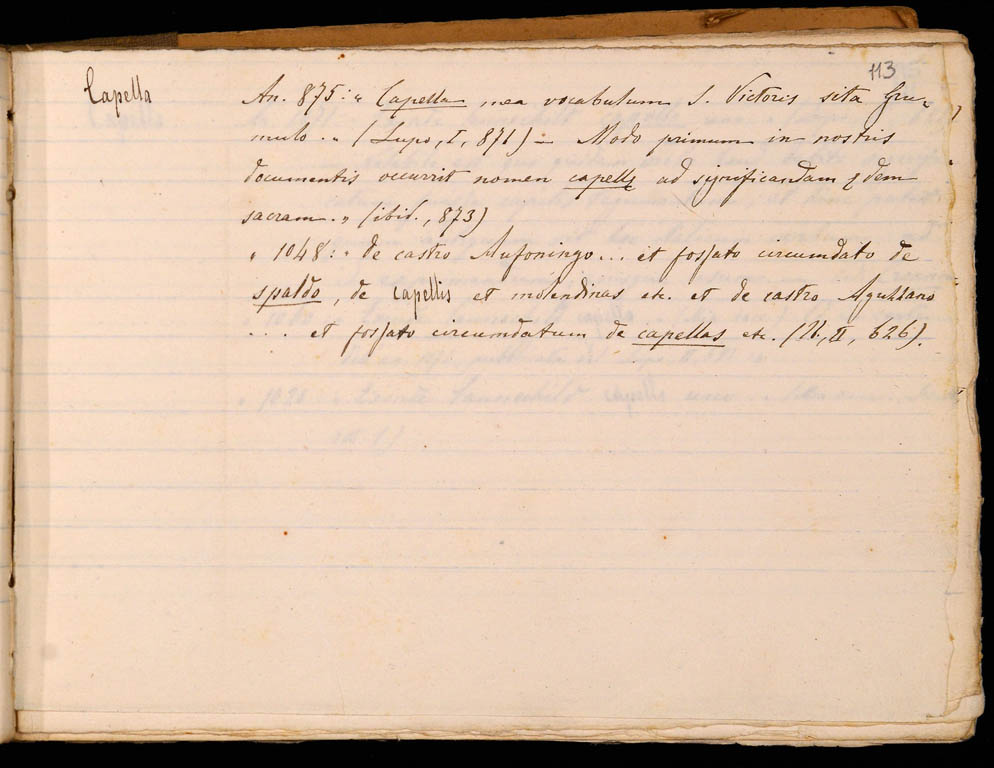 113
Capella
An. 875: " Capella mea vocabulum S. Victoris sita Gru-
mulo . " (Lupo, I, 871) = Modo primum in nostris
documentis occurrit nomen capellę ad significandam ędem
sacram. " (ibid., 873)
" 1048: " de castro Mufoningo ... et fossato circumdato de
spaldo, de capellis et molendinas etc. et de castro
... et fossato circumdatum de capellas etc. (Ib, II, 626).